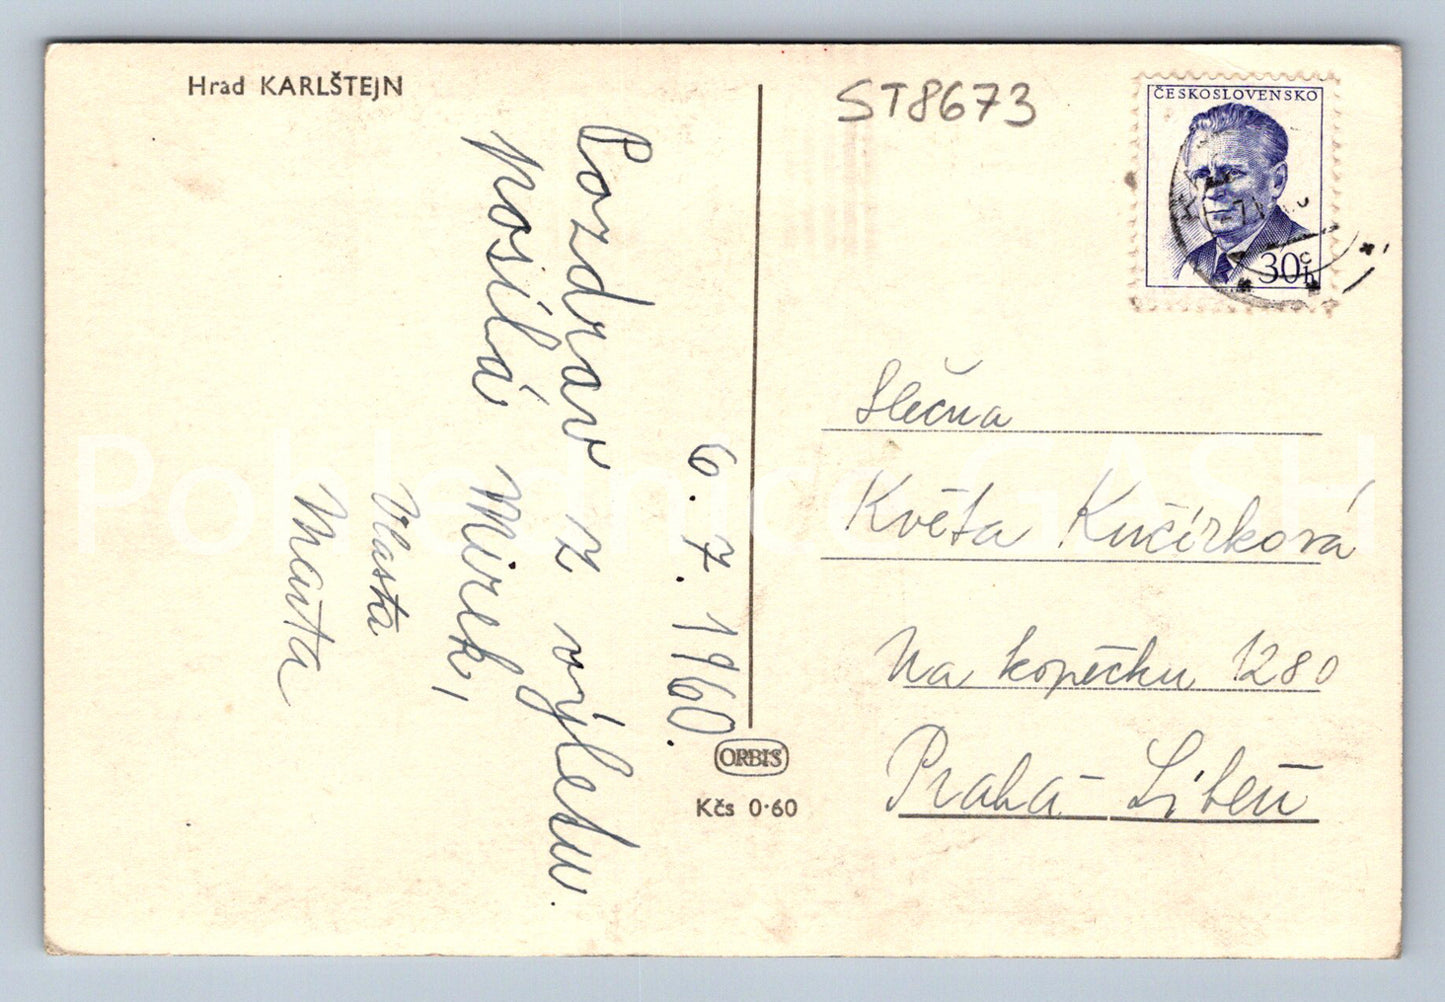 Hrad KARLŠTEJN
ST8673
ČESKOSLOVENSKO
30h
6. 7. 1960.
Pozdrav z výletu
posílá Mirek,
Vlasta
Marta
Slečna
Květa Kučírková
Na kopečku 1280
Praha - Libeň
ORBIS
Kčs 0·60
Pohlednice GASH